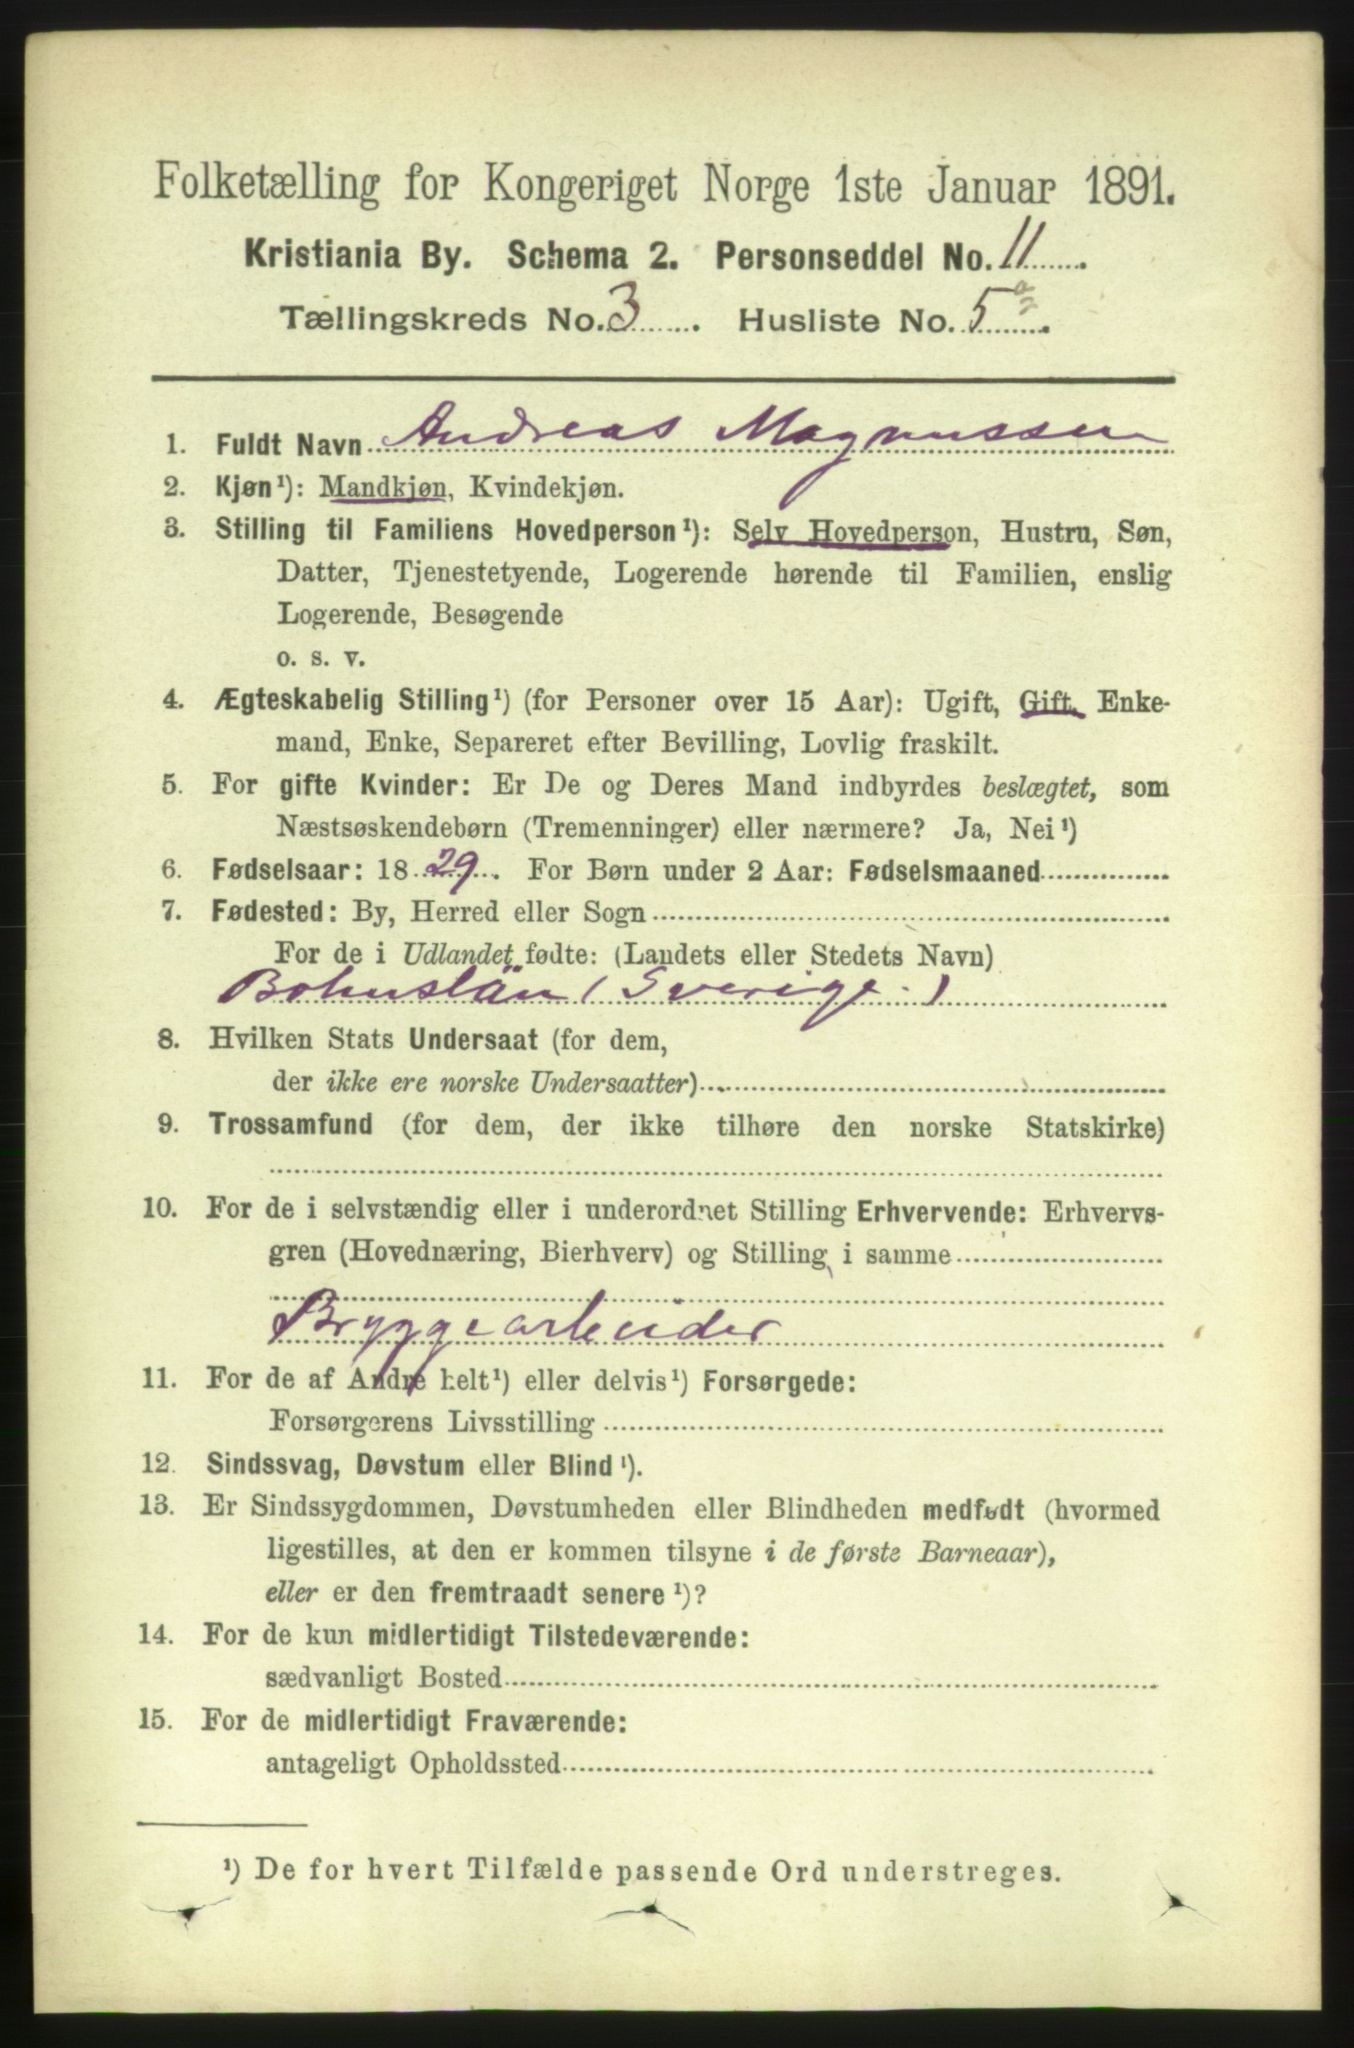 Folketælling for Kongeriget Norge 1ste Januar 1891.
Kristiania By. Schema 2. Personseddel No. 11
Tællingskreds No. 3. Husliste No. 5
1. Fuldt Navn Andreas Magnussen
2. Kjøn¹): Mandkjøn, Kvindekjøn.
3. Stilling til Familiens Hovedperson¹): Selv Hovedperson, Hustru, Søn,
Datter, Tjenestetyende, Logerende hørende til Familien, enslig
Logerende, Besøgende
o. s. v.
4. Ægteskabelig Stilling¹) (for Personer over 15 Aar): Ugift, Gift, Enke-
mand, Enke, Separeret efter Bevilling, Lovlig fraskilt.
5. For gifte Kvinder: Er De og Deres Mand indbyrdes beslægtet, som
Næstsøskendebørn (Tremenninger) eller nærmere? Ja, Nei¹)
6. Fødselsaar: 1829. For Børn under 2 Aar: Fødselsmaaned
7. Fødested: By, Herred eller Sogn
For de i Udlandet fødte: (Landets eller Stedets Navn)
Bohuslän (Sverige.)
8. Hvilken Stats Undersaat (for dem,
der ikke ere norske Undersaatter)
9. Trossamfund (for dem, der ikke tilhøre den norske Statskirke)
10. For de i selvstændig eller i underordnet Stilling Erhvervende: Erhvervs-
gren (Hovednæring, Bierhverv) og Stilling i samme
Bryggearbeider
11. For de af Andre helt¹) eller delvis¹) Forsørgede:
Forsørgerens Livsstilling
12. Sindssvag, Døvstum eller Blind¹).
13. Er Sindssygdommen, Døvstumheden eller Blindheden medfødt (hvormed
ligestilles, at den er kommen tilsyne i de første Barneaar),
eller er den fremtraadt senere¹)?
14. For de kun midlertidigt Tilstedeværende:
sædvanligt Bosted
15. For de midlertidigt Fraværende:
antageligt Opholdssted
¹) De for hvert Tilfælde passende Ord understreges.